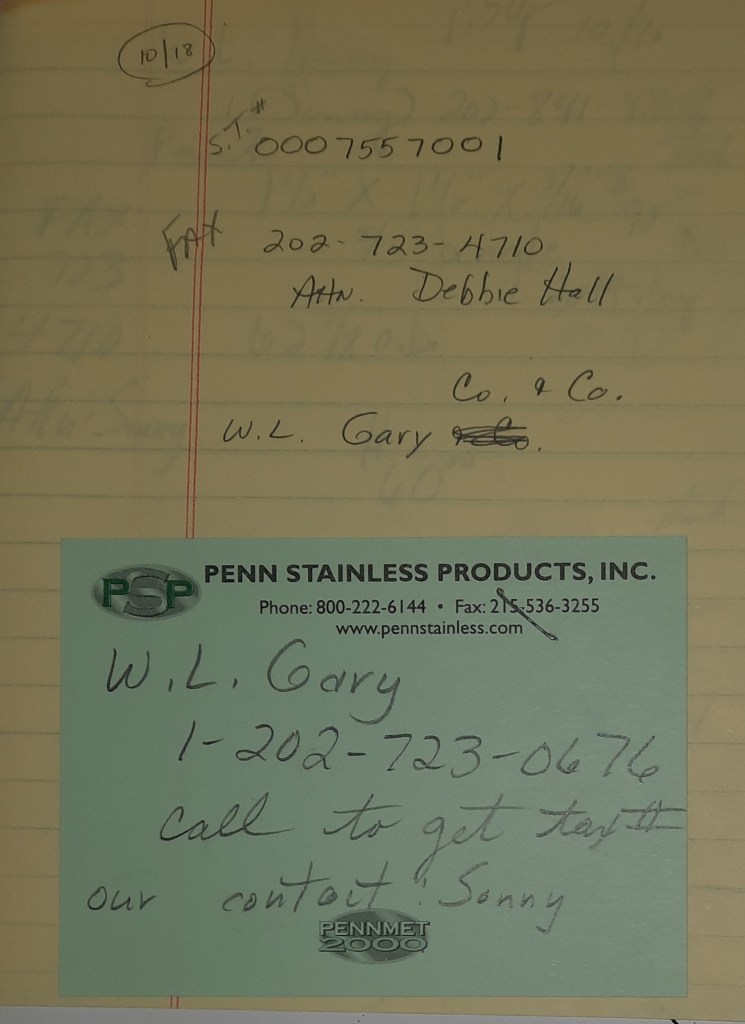 10/18
S.T.# 0007557001
FAX 202-723-4710
Attn. Debbie Hall
Co. & Co.
W.L. Gary Co.
PSP PENN STAINLESS PRODUCTS, INC.
Phone: 800-222-6144 • Fax: 215-536-3255
www.pennstainless.com
W.L. Gary
1-202-723-0676
Call to get tax #
our contact: Sonny
PENNMET
2000